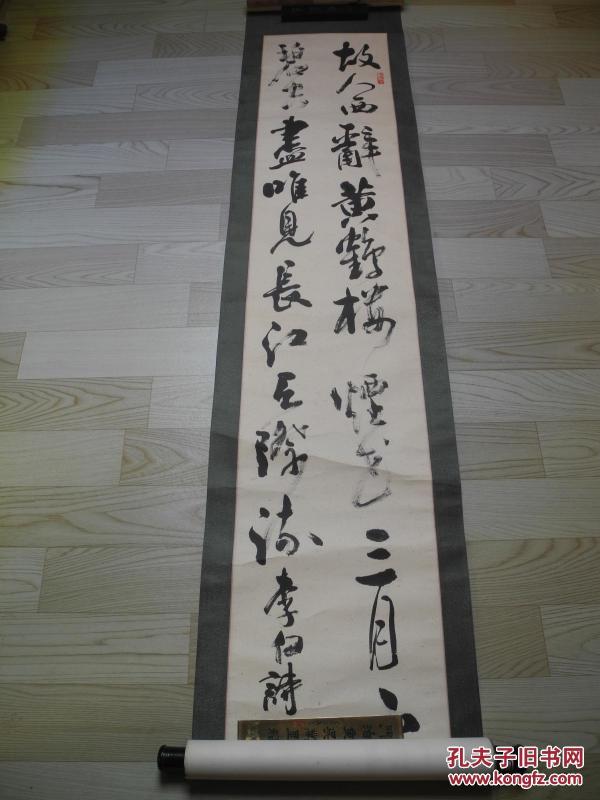 故人西辭黄鶴楼煙花三月下
碧空盡唯見長江天際流李白詩
孔夫子旧书网
www.kongfz.com